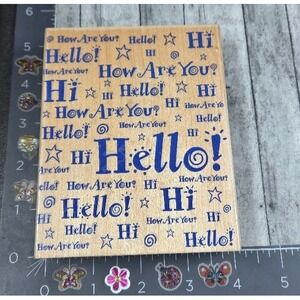 6
How Are You? Hello! Hi
Hello! Hi
How Are You? How Are You?
Hi Hello! Hi Hello!
How Are You? Hi
Hello! Hello!
How Are You? Hi Hello!
Hello! How Are You? Hi
Hi Hello! Hi
How Are You? Hi Hello!
5
4
3
2
1
0
1
2
3
4
5